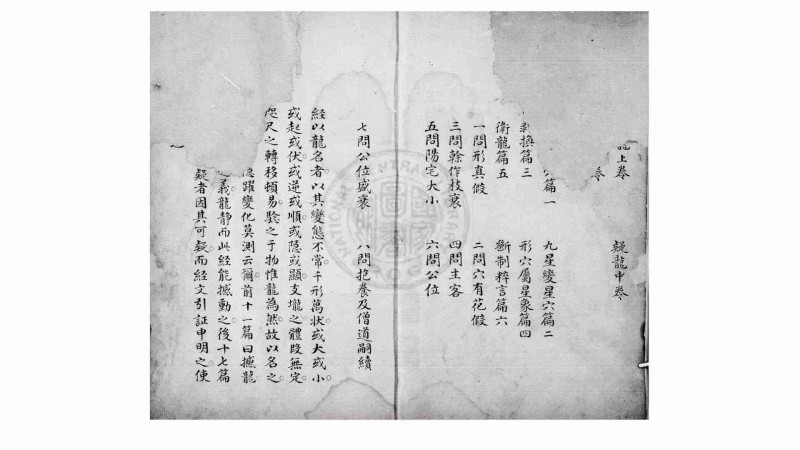 上卷 疑龍中卷
卷
篇一 九星變星穴篇二
撰篇三 形穴屬星象篇四
衛龍篇五 斷制粹言篇六
一問形真假 二問穴有花假
三問榦作枝衰 四問主客
五問陽定大小 六問公位
七問公位盛衰 八問抱養及僧道嗣續
經以龍名者以其變態不常千形萬狀或大或小
或起或伏或逆或順或隐或顯支壠之體段無定
咫尺之轉移頓易騐之于物惟龍為然故以名之
躍變化莫測云爾前十一篇曰撼龍
義龍静而此經能撼動之後十七篇
疑者因其可疑而經文引証申明之使